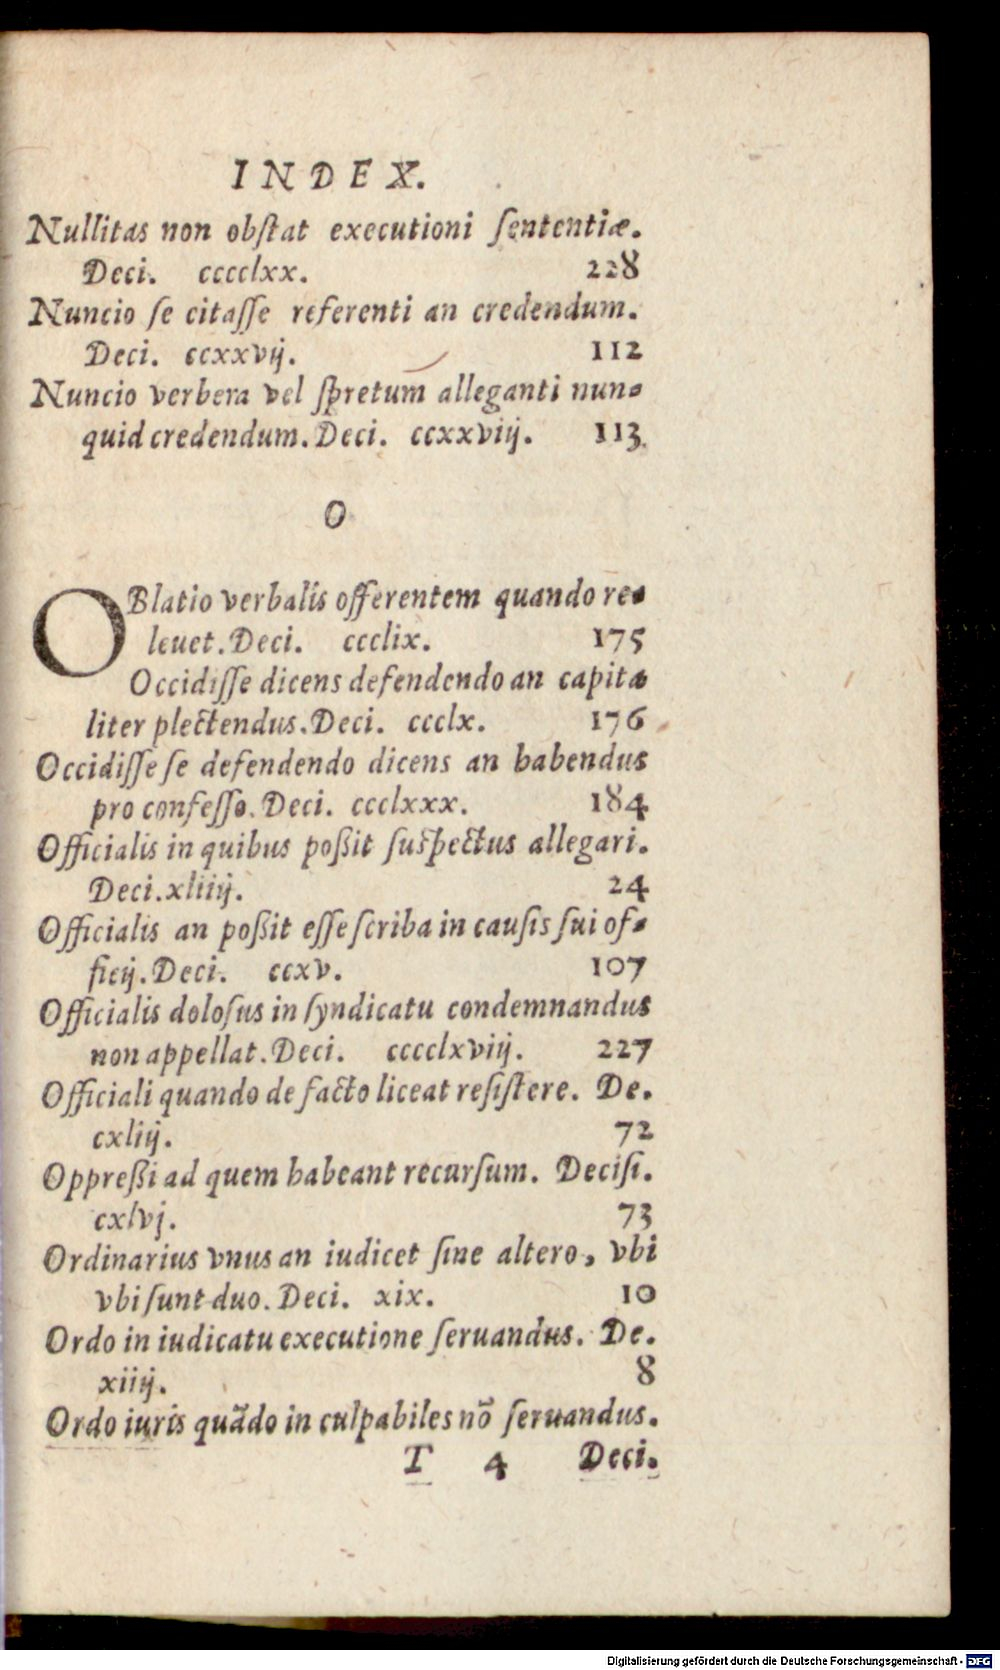 INDEX.
Nullitas non obſtat executioni ſententiæ.
Deci. cccclxx. 228
Nuncio ſe citaſſe referenti an credendum.
Deci. ccxxvij. 112
Nuncio verbera vel ſpretum alleganti nun-
quid credendum. Deci. ccxxviij. 113
O
OBlatio verbalis offerentem quando re-
leuet. Deci. ccclix. 175
Occidiſſe dicens defendendo an capita-
liter plectendus. Deci. ccclx. 176
Occidiſſe ſe defendendo dicens an habendus
pro confeſſo. Deci. ccclxxx. 184
Officialis in quibus poßit ſuſpectus allegari.
Deci. xliiij. 24
Officialis an poßit eſſe ſcriba in cauſis ſui of-
ficij. Deci. ccxv. 107
Officialis doloſus in ſyndicatu condemnandus
non appellat. Deci. cccclxviij. 227
Officiali quando de facto liceat reſiſtere. De.
cxliij. 72
Oppreßi ad quem habeant recurſum. Deciſi.
cxlvj. 73
Ordinarius vnus an iudicet ſine altero, vbi
vbi ſunt duo. Deci. xix. 10
Ordo in iudicatu executione ſeruandus. De.
xiiij. 8
Ordo iuris quãdo in culpabiles nõ ſeruandus.
T 4 Deci.
Digitalisierung gefördert durch die Deutsche Forschungsgemeinschaft - DFG